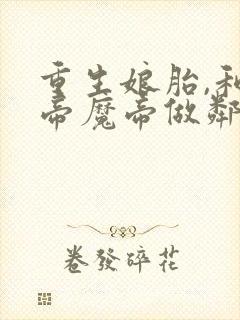 重生娘胎,和
帝魔帝做鄰
卷發碎花